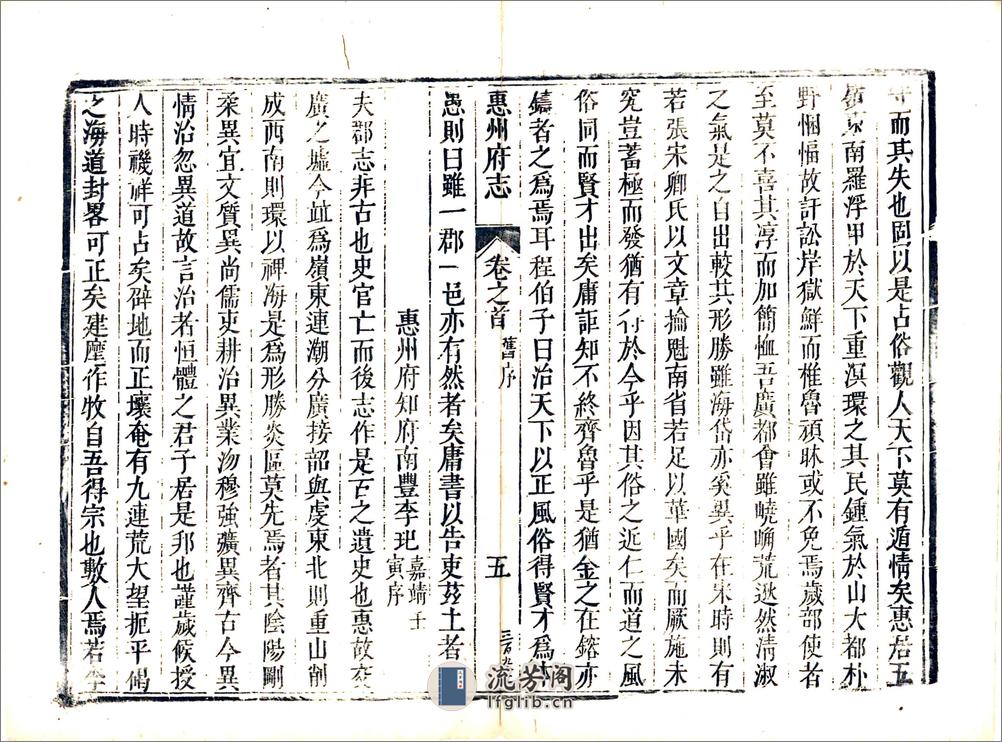 而其失也固以是占俗觀人天下莫有遁情矣惠居五
嶺東南羅浮甲於天下重溟環之其民鍾氣於山大都朴
野悃愊故訐訟岸獄鮮而椎魯頑眜或不免焉歲部使者
至莫不喜其淳而加簡恤吾廣都會雖嶢崅荒逖然清淑
之氣是之自出較其形勝雖海岱亦奚異乎在宋時則有
若張宋卿氏以文章掄魁南省若足以華國矣而厥施未
究豈蓄極而發猶有待於今乎因其俗之近仁而道之風
俗同而賢才出矣庸詎知不終齊魯乎是猶金之在鎔亦
鑄者之爲焉耳程伯子曰治天下以正風俗得賢才爲本
惠州府志 卷之首 舊序 五
愚則曰雖一郡一邑亦有然者矣庸書以告吏茲土者
惠州府知府南豐李玘嘉靖壬寅序
夫郡志非古也史官亡而後志作是古之遺史也惠故交
廣之墟今趾爲嶺東連潮分廣接韶與虔東北則重山削
成西南則環以裨海是爲形勝炎區莫先焉者其陰陽剛
柔異宜文質異尚儒吏耕治異業沕穆強獷異齊古今異
情治忽異道故言治者恒體之君子居是邦也謹歲候授
人時禨祥可占矣辟地而正壤奄有九連荒大望扼平碣
之海道封畧可正矣建麾作牧自吾得宗也數人焉若李
流芳阁
lfglib.cn